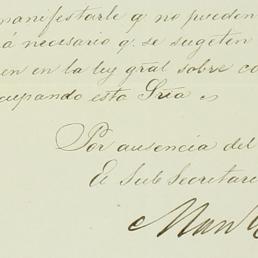 manifestarle q. no pueden
á necesario q. se sugeten
en en la ley gral sobre co
cupando esta Sría
Por ausencia del
El Sub Secretari